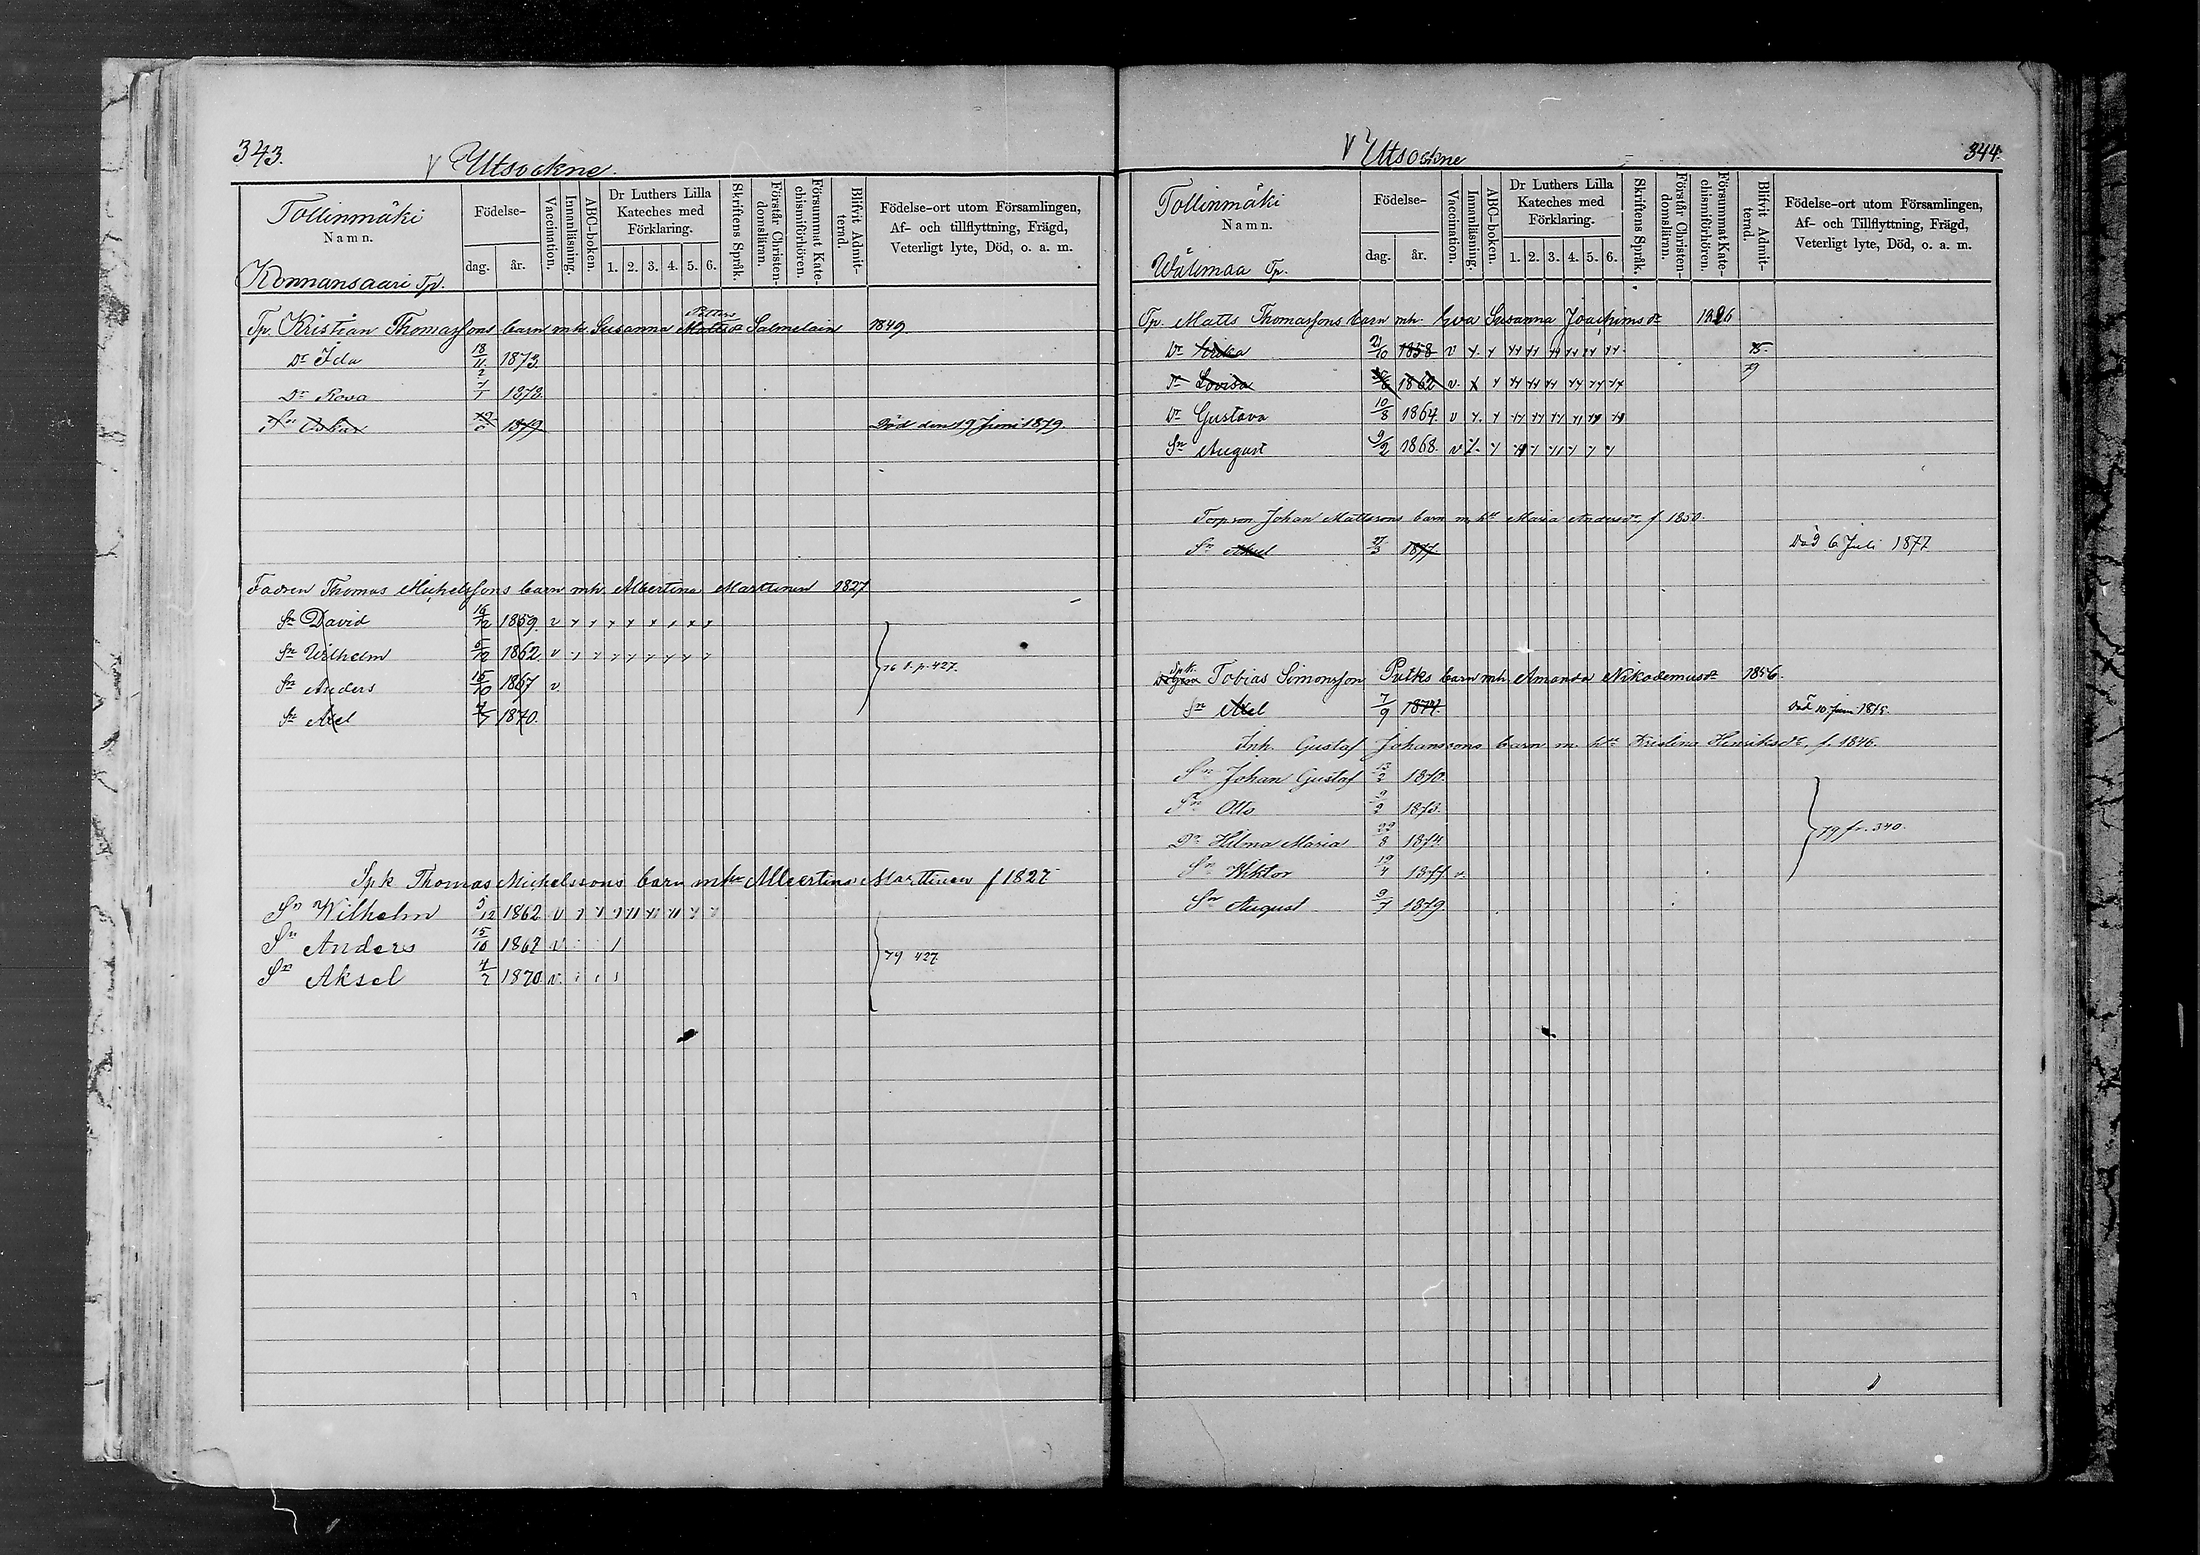 343.
V Utsockne.
Tollinmäki
Namn.
Konnansaari Tp.
Födelse-
dag.
år.
Vaccination.
Innanläsning.
ABC-boken.
Dr Luthers Lilla
Kateches med
Förklaring.
1. 2. 3. 4. 5. 6.
Skriftens Språk.
Förstår Christen-
domsläran.
Försummat Kate-
chismiförhören.
Blifvit Admit-
terad.
Födelse-ort utom Församlingen,
Af- och tillflyttning, Frägd,
Veterligt lyte, Död, o. a. m.
Tp. Kristian Thomassons barn mh Susanna Salmelain 1849
Dr Ida 18/11 1873.
Dr Rosa 1878
Sn Oskar 1879 Död den 19 Juni 1879.
Fadren Thomas Michelssons barn mh. Albertina Marttinen 1827
Sn David 16/12 1859. v
Sn Wilhelm 5/12 1862. v
Sn Anders 15/10 1867 v.
Sn Axel 4/7 1870.
76 t. p. 427.
Spk Thomas Michelssons barn mhu Albertina Marttinen f 1827
Sn Wilhelm 5/12 1862 v
Sn Anders 15/10 1867 v
Sn Aksel 4/7 1870 v.
79 427
344.
V Utsockne
Tollinmäki
Namn.
Wälimaa Tp.
Födelse-
dag.
år.
Vaccination.
Innanläsning.
ABC-boken.
Dr Luthers Lilla
Kateches med
Förklaring.
1. 2. 3. 4. 5. 6.
Skriftens Språk.
Förstår Christen-
domsläran.
Försummat Kate-
chismiförhören.
Blifvit Admit-
terad.
Födelse-ort utom Församlingen,
Af- och Tillflyttning, Frägd,
Veterligt lyte, Död, o. a. m.
Tp. Matts Thomassons barn mh. Eva Susanna Joachimsdr
Dr 21/10 1858 v
Dr Lovisa 1862 v. 79
Dr Gustava 10/8 1864. v
Sn August 9/2 1868. v
Torp son Johan Mattssons barn m. hu Maria Andersdr f 1850.
Sn Axel 1877. Död 6 Juli 1877
Spk. Tobias Simonsson Putks barn mh Amanda Nikodemusdr 1856.
Sn Axel 7/9 1874. Död 10 Juni 1875.
Inh. Gustaf Johanssons barn m. hu Kristina Henriksdr, f. 1846.
Sn Johan Gustaf 13/2 1870.
Sn Otto 9/2 1873.
Dr Hilma Maria 22/8 1874.
Sn Wiktor 19/4 1877 v.
79 fr. 340.
Sn August 9/7 1879